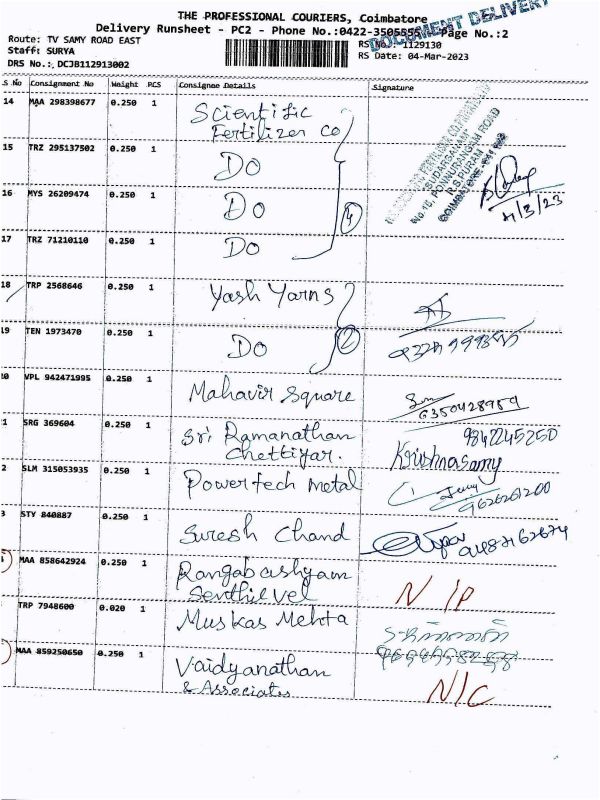 THE PROFESSIONAL COURIERS, Coimbatore
Delivery Runsheet - PC2 - Phone No.:0422-3505555 Page No.:2
DOCUMENT DELIVERY
Route: TV SAMY ROAD EAST
RS No.: 1129130
Staff: SURYA
RS Date: 04-Mar-2023
DRS No.: DCJB112913002
S.No Consignment No Weight PCS Consignee Details Signature
14 MAA 298398677 0.250 1 Scientific
Fertilizer Co
15 TRZ 295137502 0.250 1 DO
No.15, PONNURANGAM ROAD
R.S.PURAM
COIMBATORE
4/3/23
16 MYS 26209474 0.250 1 DO
4
17 TRZ 71210110 0.250 1 DO
18 TRP 2568646 0.250 1 Yash Yarns
19 TEN 1973470 0.250 1 DO
2
20 VPL 942471995 0.250 1 Mahavir Square
6350428959
1 SRG 369604 0.250 1 Sri Ramanathan 9842245250
Chettiyar. Krishnasamy
2 SLM 315053935 0.250 1 Powertech metal 9626261200
3 STY 840887 0.250 1 Suresh Chand
MAA 858642924 0.250 1 Rangabashyam
Senthilvel N/P
TRP 7948600 0.020 1 Muskas Mehta
MAA 859250650 0.250 1 Vaidyanathan
& Associates N/C